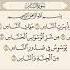 سُورَةُ النَّاسِ
بِسْمِ اللَّهِ الرَّحْمَٰنِ الرَّحِيمِ
قُلْ أَعُوذُ بِرَبِّ النَّاسِ مَلِكِ النَّاسِ
إِلَٰهِ النَّاسِ مِن شَرِّ الْوَسْوَاسِ الْخَنَّاسِ الَّذِي
يُوَسْوِسُ فِي صُدُورِ النَّاسِ
مِنَ الْجِنَّةِ وَالنَّاسِ